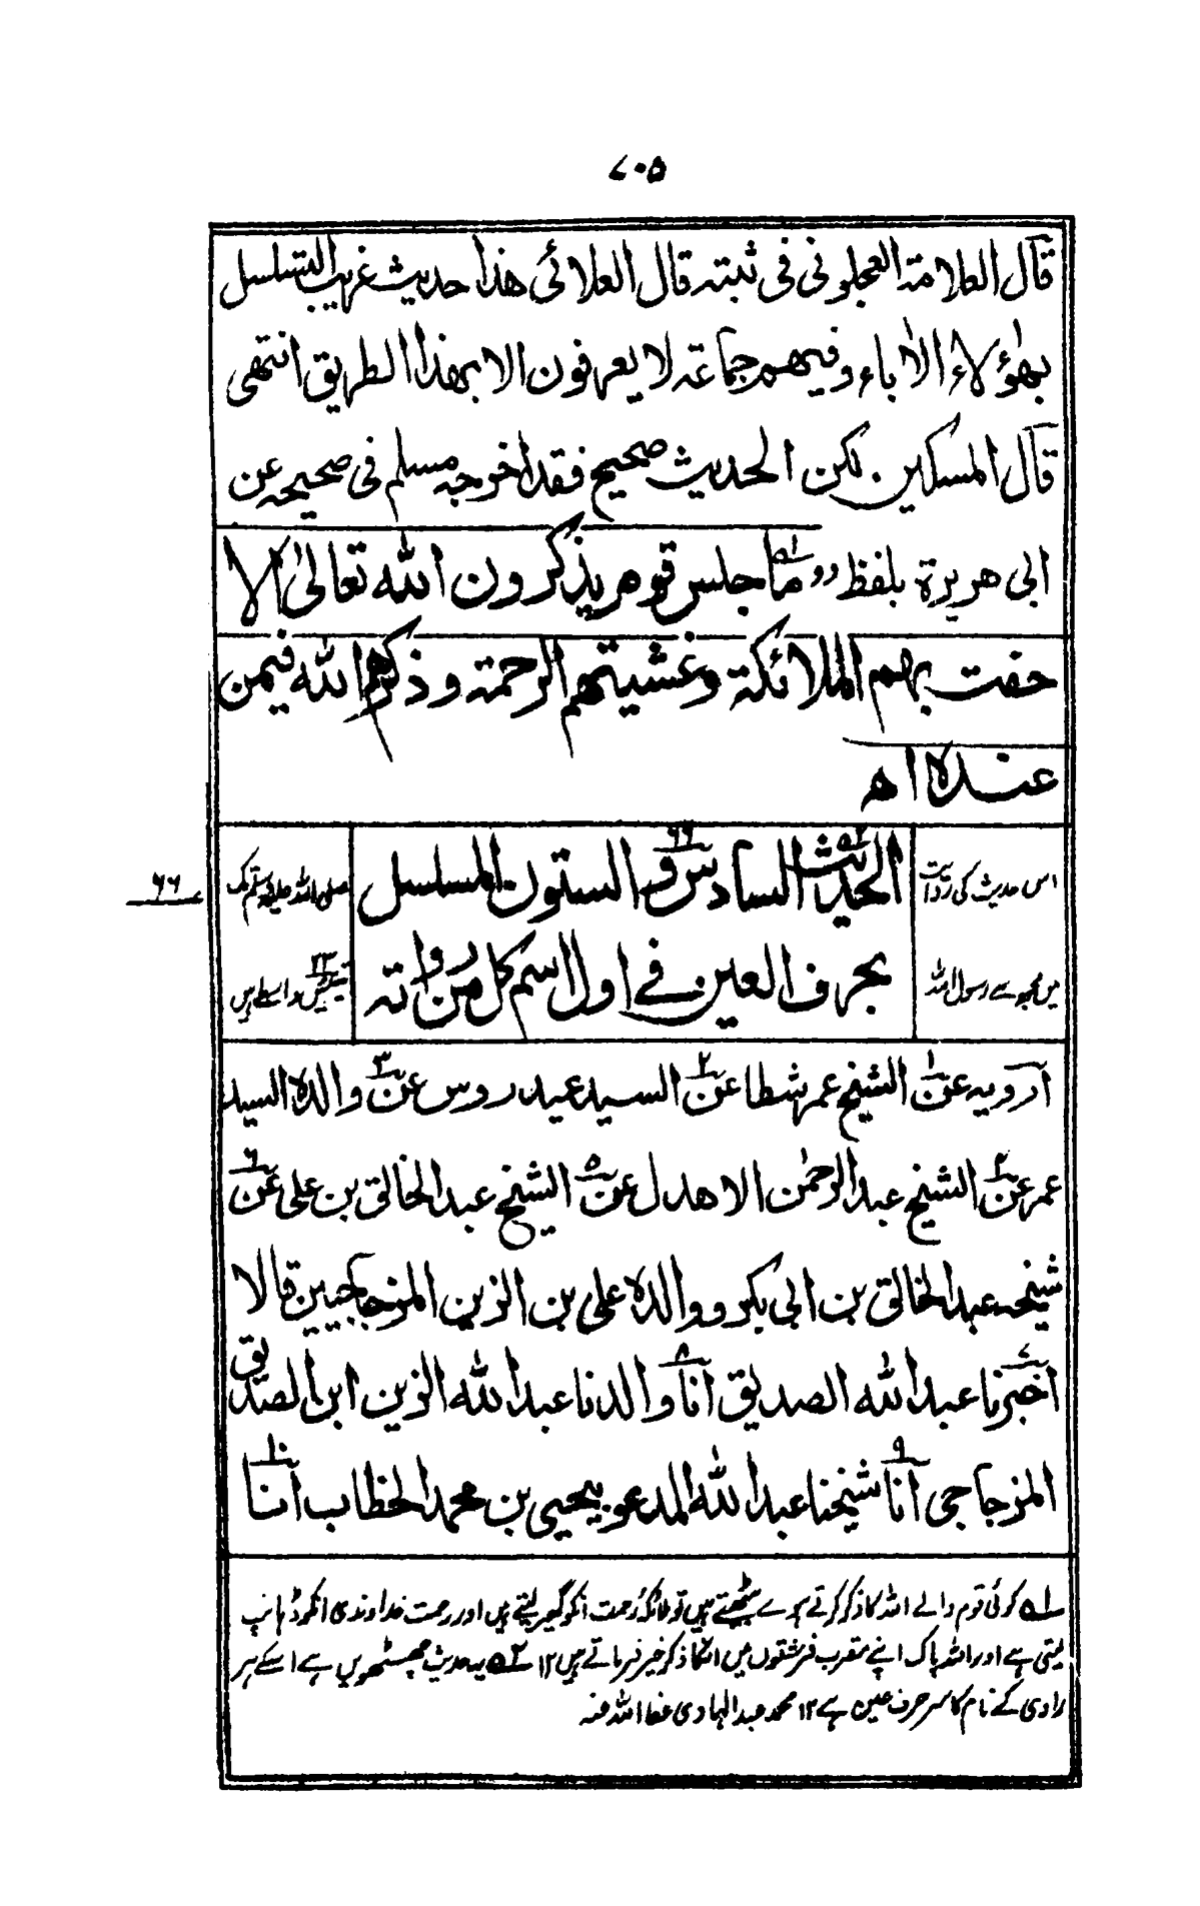 ۷۰۵
قال العلامة العجلونی فی ثبته قال العلائی هذا حدیث غریب التسلسل
بهٰؤلاء الآباء وفیهم جماعة لا یعرفون الا بهذا الطریق انتهی
قال المسکین لکن الحدیث صحیح فقد اخرجه مسلم فی صحیحه عن
ابی هریرة بلفظ "ما۱؎ جلس قوم یذکرون الله تعالیٰ الا
حفت بهم الملائکة وغشیتهم الرحمة وذکرهم الله فیمن
عنده اھ
الحدیث۲؎ السادس و الستون۶۶ المسلسل
بحرف العین فے اول اسم کل من رواته
اس حدیث کی روایت
میں مجھ سے رسول اللہ
صلی اللہ علیہ وسلم تک
تیئیس۲۳ واسطے ہیں
۶۶
ارویه عن۱ الشیخ عمر شطا عن۲ السید عیدروس عن۳ والده السید
عمر عن۴ الشیخ عبدالرحمٰن الاهدل عن۵ الشیخ عبدالخالق بن علی عن۶
شیخه عبدالخالق بن ابی بکر ووالده علی بن الزین المزجاجیین قالا
اخبرنا۷ عبدالله الصدیق انا۸ والدنا عبدالله الزین ابن الصدیق
المزجاجی انا۹ شیخنا عبدالله المدعو بیحیی بن محمد الحطاب انا۱۰
۱؎ کوئی قوم والے اللہ کا ذکر کرتے ہوے بیٹھتے ہیں تو ملائکہ رحمت انکو گھیر لیتے ہیں اور رحمت خداوندی انکو ڈھانپ
لیتی ہے اور اللہ پاک اپنے مقرب فرشتوں میں انکا ذکر خیر فرماتے ہیں ۱۲ ۲؎ یہ حدیث چھسٹھویں ہے اسکے ہر
راوی کے نام کا سر حرف عین ہے ۱۲ محمد عبدالہادی عفا اللہ عنہ